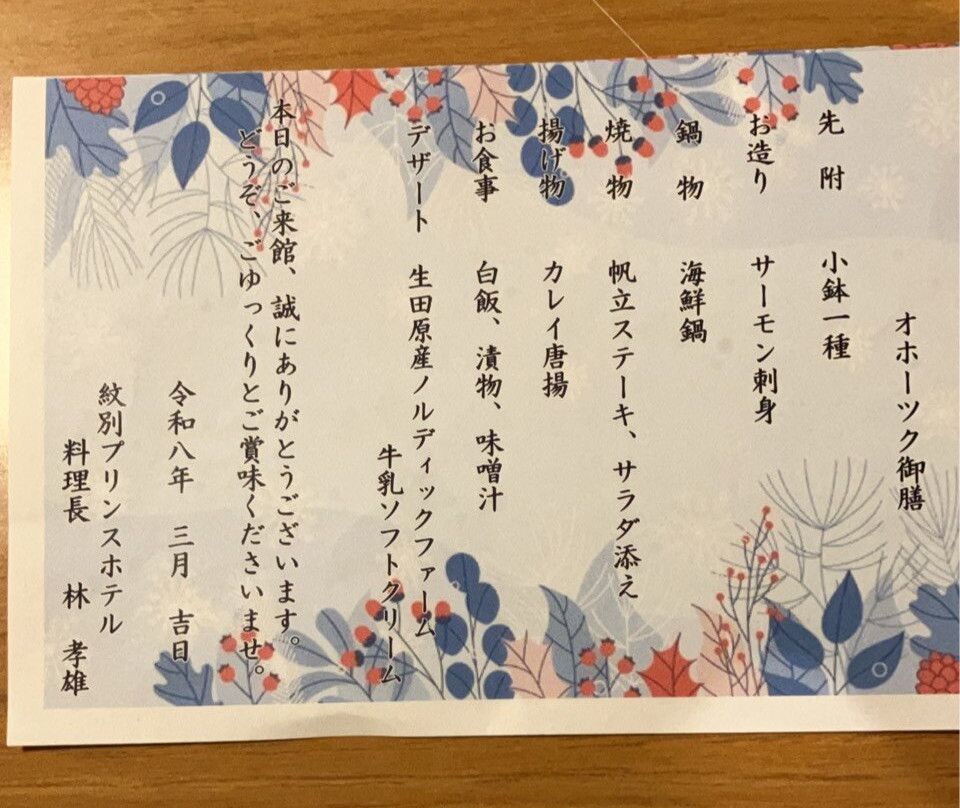 オホーツク御膳
先　附　小鉢一種
お造り　サーモン刺身
鍋　物　海鮮鍋
焼　物　帆立ステーキ、サラダ添え
揚げ物　カレイ唐揚
お食事　白飯、漬物、味噌汁
デザート　生田原産ノルディックファーム
牛乳ソフトクリーム
本日のご来館、誠にありがとうございます。
どうぞ、ごゆっくりとご賞味くださいませ。
令和八年　三月　吉日
紋別プリンスホテル
料理長　林　孝雄